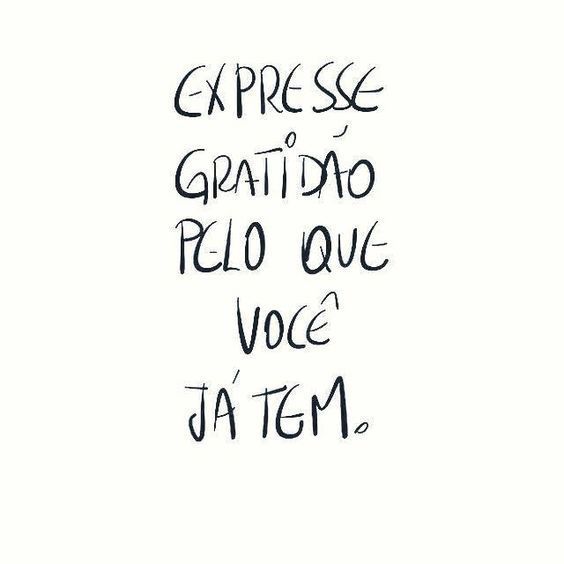 EXPRESSE
GRATIDÃO
PELO QUE
VOCÊ
JÁ TEM.